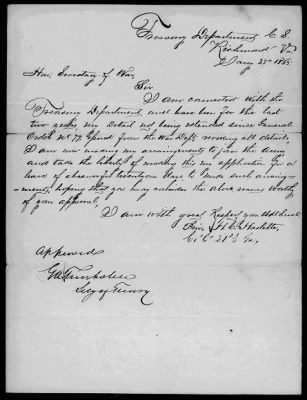 Treasury Department, C. S.
Richmond Va
Jany 25th 1865
Hon. Secretary of War
Sir
I am connected with the
Treasury Department, and have been for the last
two my Detail not being extended since General
Order No. 77, issued from the War Dept, revoking all details,
I am now making my arrangements to join the Army
and take the liberty of making this my application for a
leave of absence of twenty days to make such arrange-
ments, hoping that you may consider the above reasons worthy
of your approval,
I am with great Respect your Obdt Servt
Co "C" 21st Ga,
Approved
G A Trenholm
Secy of Treasury